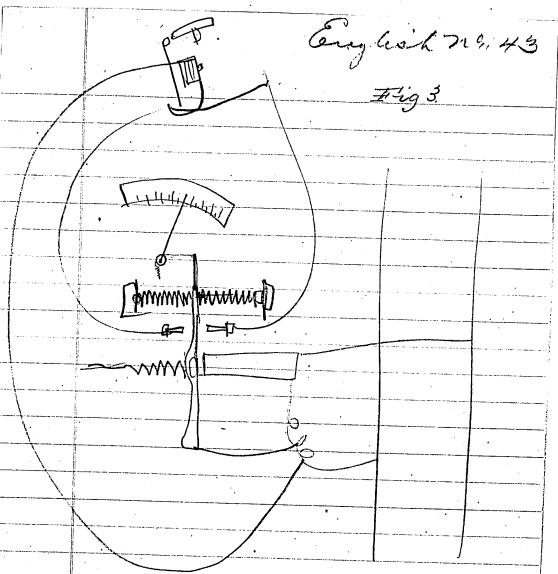 English No. 43
Fig 3